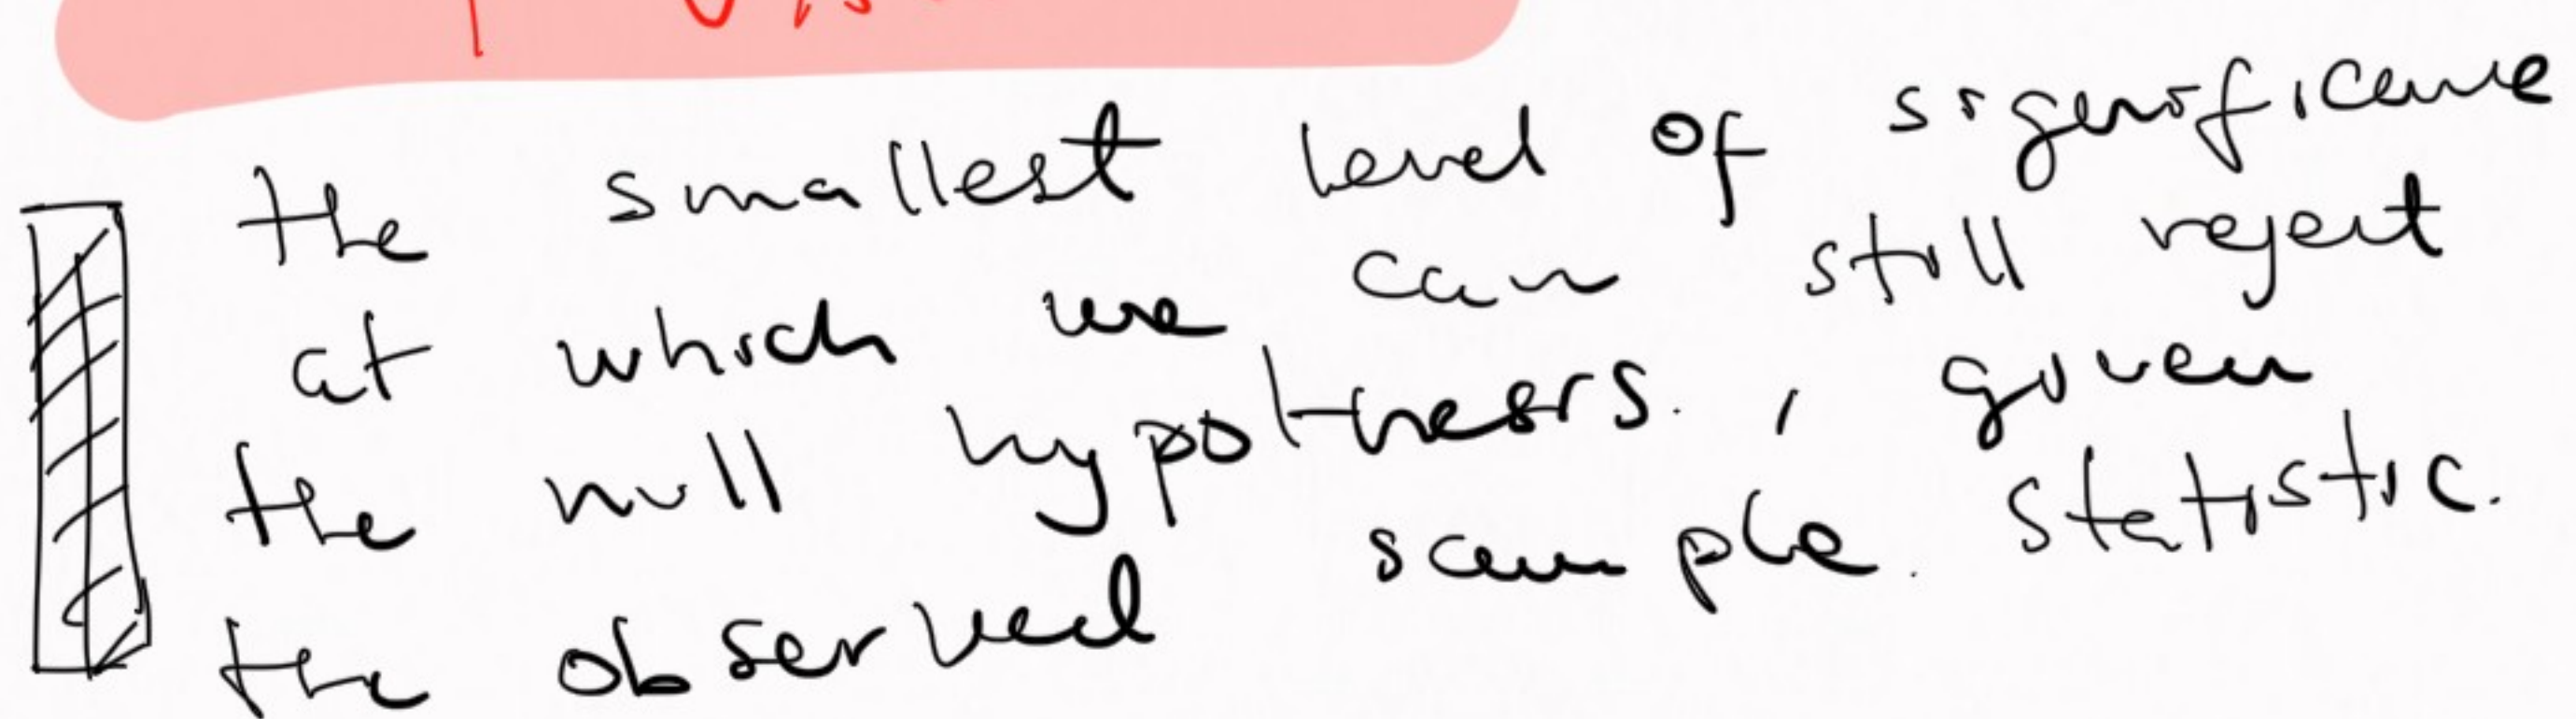 the smallest level of significance
at which we can still reject
the null hypothesis. , given
the observed sample. statistic.